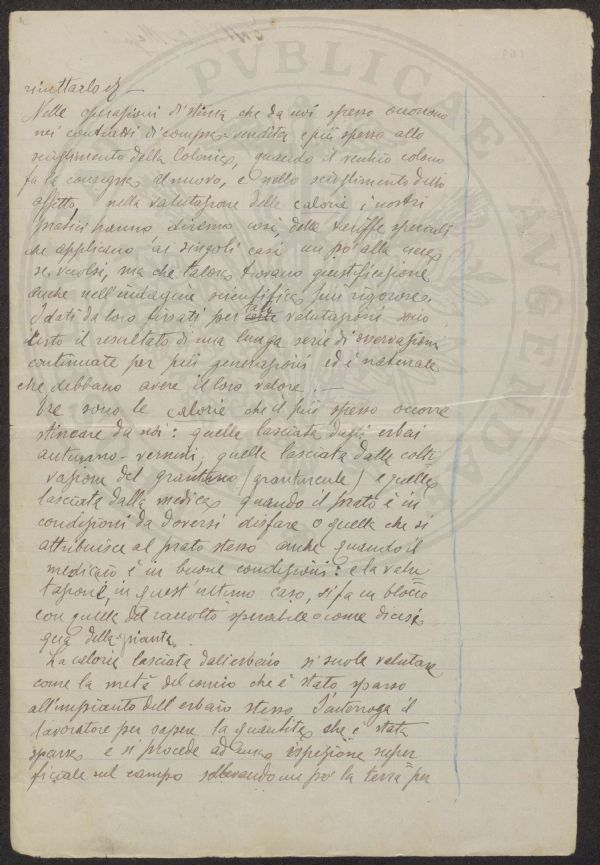 Nelle operazioni di stima che da noi spesso occorrono
nei contratti di compra-vendita e più spesso allo
scioglimento della Colonia, quando il vecchio colono
fa la consegna al nuovo, e nello scioglimento dello
affitto, nella valutazione delle calorie i nostri
pratici hanno, diremo così, delle tariffe speciali
che applicano ai singoli casi un po' alla cieca
se vuolsi, ma che talora trovano giustificazione
anche nell'indagine scientifica più rigorosa.
I dati da loro fissati per tale valutazioni sono
certo il resultato di una lunga serie di osservazioni
continuate per più generazioni ed è naturale
che debbano avere il loro valore. —
Tre sono le calorie che il più spesso occorre
stimare da noi: quella lasciata dagli erbai
autunno-vernini, quella lasciata dalla colti=
vazione del granturco (granturcule) e quella
lasciata dalla medica quando il prato è in
condizioni da doversi disfare o quella che si
attribuisce al prato stesso anche quando il
medicaio è in buone condizioni: e la valu=
tazione, in quest'ultimo caso, si fa in blocco
con quella del raccolto sperabile o come dicesi
qua della pianta.
La caloria lasciata dall'erbaio si suole valutare
come la metà del concio che è stato sparso
all'impianto dell'erbaio stesso. S'interroga il
lavoratore per sapere la quantità che è stata
sparsa e si procede ad una ispezione super=
ficiale sul campo sollevando un po' la terra per
PVBLICAE
AVGENDAE